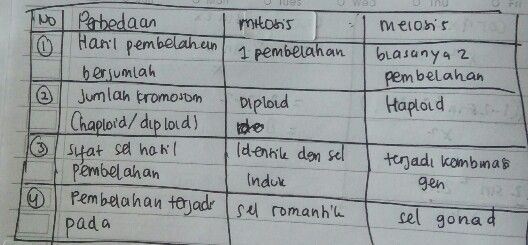 NO Perbedaan mitosis meiosis
① Hasil pembelahan 1 pembelahan biasanya 2
berjumlah pembelahan
② Jumlah kromosom Diploid Haploid
(haploid/diploid)
③ sifat sel hasil Identik den sel terjadi kombinasi
pembelahan Induk gen
④ Pembelahan terjadi sel romantik sel gonad
pada